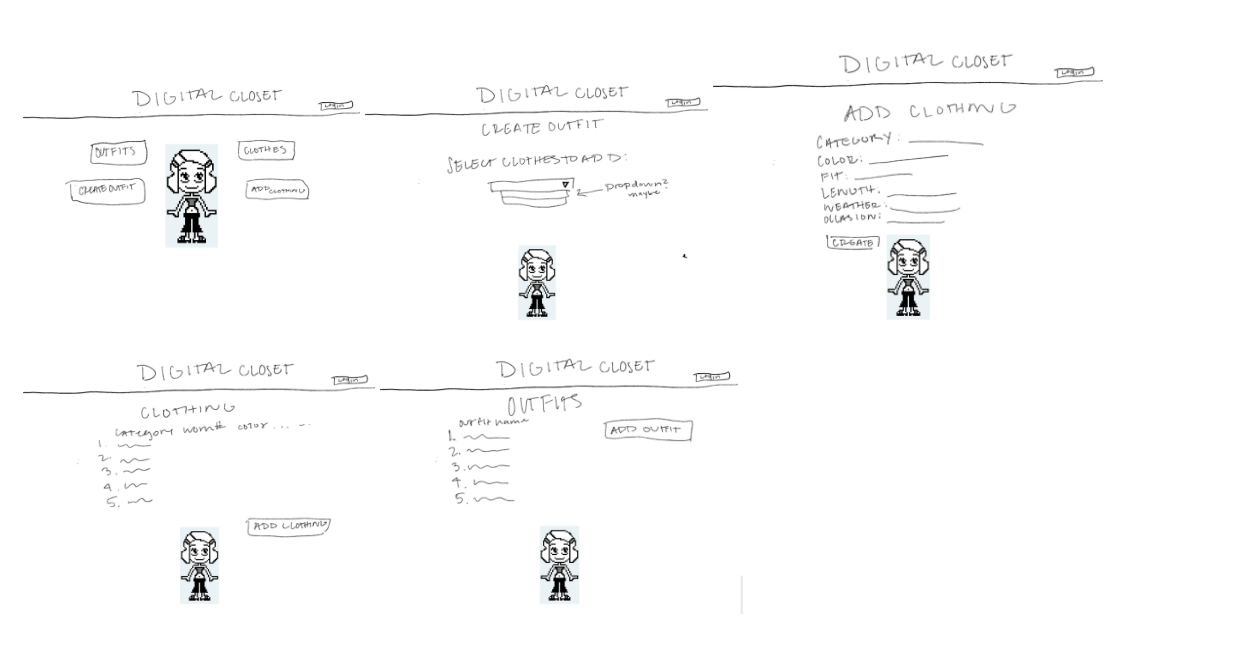 DIGITAL CLOSET
LOGIN
OUTFITS
CLOTHES
CREATE OUTFIT
ADD CLOTHING
DIGITAL CLOSET
LOGIN
CREATE OUTFIT
SELECT CLOTHES TO ADD:
Dropdown?
maybe?
DIGITAL CLOSET
LOGIN
ADD CLOTHING
CATEGORY:
COLOR:
FIT:
LENGTH:
WEATHER:
OCCASION:
CREATE
DIGITAL CLOSET
LOGIN
CLOTHING
Category worn# color ... --
1.
2.
3.
4.
5.
ADD CLOTHING
DIGITAL CLOSET
LOGIN
OUTFITS
outfit name
1.
2.
3.
4.
5.
ADD OUTFIT